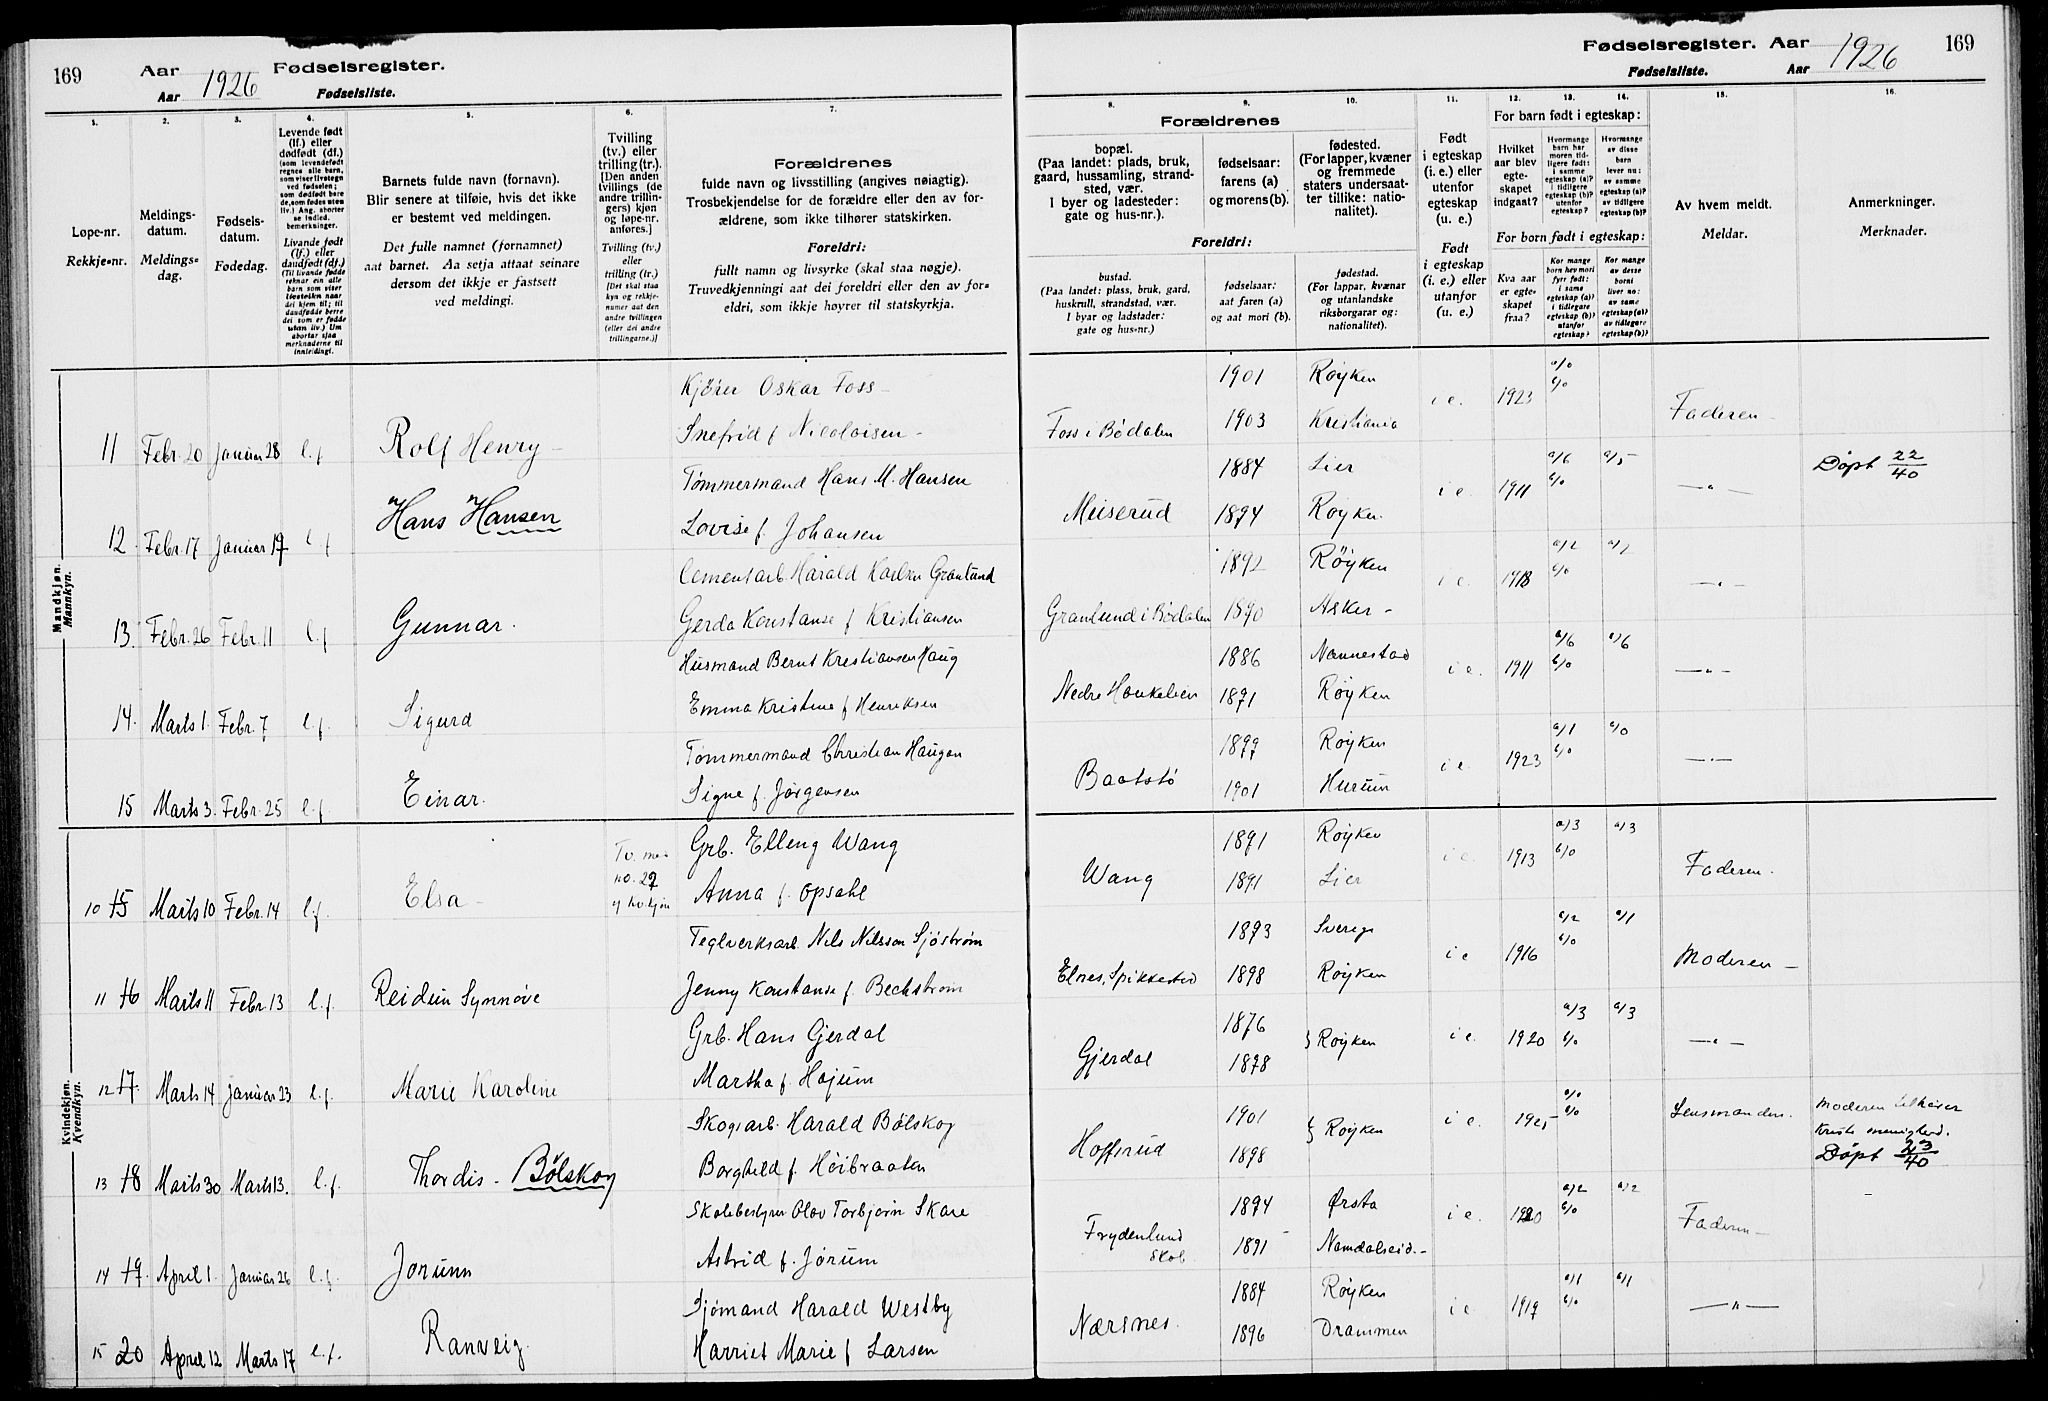 169 Aar 1926 Fødselsregister.
Aar Fødselsliste.
Fødselsregister. Aar 1926 169
Fødselsliste. Aar
1. 2. 3. 4. 5. 6. 7. 8. 9. 10. 11. 12. 13. 14. 15. 16.
Løpe-nr.
Rekkje-nr.
Meldings-
datum.
Meldings-
dag.
Fødsels-
datum.
Fødedag.
Levende født
(lf.) eller
dødfødt (df.)
Livande født
(lf.) eller
daudfødt (df.)
Barnets fulde navn (fornavn).
Blir senere at tilføie, hvis det ikke
er bestemt ved meldingen.
Det fulle namnet (fornamnet)
aat barnet. Aa setja attaat seinare
dersom det ikkje er fastsett
ved meldingi.
Tvilling
(tv.) eller
trilling (tr.).
[Den anden
tvillings (de
andre trillin-
gers) kjøn
og løpe-nr.
anføres.]
Tvilling (tv.)
eller
trilling (tr.)
[Det skal staa
kyn og rekkje-
numer aat den
andre tvillingen
(eller dei andre
trillingarne.)]
Forældrenes
fulde navn og livsstilling (angives nøiagtig).
Trosbekjendelse for de forældre eller den av for-
ældrene, som ikke tilhører statskirken.
Foreldri:
fullt namn og livsyrke (skal staa nøgje).
Truvedkjenningi aat dei foreldri eller den av for-
eldri, som ikkje høyrer til statskyrkja.
Forældrenes
bopæl.
(Paa landet: plads, bruk,
gaard, hussamling, strand-
sted, vær.
I byer og ladesteder:
gate og hus-nr.).
fødselsaar:
farens (a)
og morens (b).
fødested.
(For lapper, kvæner
og fremmede
staters undersaat-
ter tillike: natio-
nalitet).
Foreldri:
bustad.
(Paa landet: plass, bruk, gard,
huskrull, strandstad, vær.
I byar og ladstader:
gate og hus-nr.)
fødselsaar:
aat faren (a)
og aat mori (b).
fødestad.
(For lappar, kvænar
og utanlandske
riksborgarar og:
nationalitet).
Født
i egteskap
(i. e.) eller
utenfor
egteskap
(u. e.)
Født
i egteskap
(i. e.) eller
utanfor
(u. e.)
For barn født i egteskap:
Hvilket
aar blev
egte-
skapet
indgaat?
For born født i egteskap:
Kva aar
er egte-
skapet
fraa?
Av hvem meldt.
Meldar.
Anmerkninger.
Merknader.
Mandkjøn.
Mannkyn.
11 Febr. 20 Januar 28 l.f Rolf Henry Kjører Oskar Foss Snefrid f Nicolaisen Foss i Bødalen 1901 1903 Røyken Kristiania i e. 1923 a/0 b/0 Faderen
12 Febr. 17 Januar 19 l.f Hans Hansen Tømmermand Hans M. Hansen Lovise f. Johansen 1884 1894 Lier Røyken i e. 1911 a/6 b/0 a/5 — " — Døpt 22/40
13. Febr. 26 Febr. 11 l.f Gunnar. Cementarb. Harald Karlsen Granlund Gerda Konstanse f Kristiansen Granlund i Bødalen 1892 1890 Røyken Asker i e. 1918 a/2 b/0 — " —
14. Marts 1. Febr. 7 l.f. Sigurd Husmand Bernt Kristiansen Haug Emma Kristine f Henriksen 1886 1891 Nannestad Røyken i e. 1911 a/6 b/0 a/6 — " —
15 Marts 3. Febr. 25 l.f. Einar. Tømmermand Christian Haugan Signe f. Jørgensen Baatstø 1899 1901 Røyken Hurum i e. 1923 a/1 b/0 a/0 — " —
Kvindekjøn.
Kvendkyn.
10 15 Marts 10 Febr. 14 l.f. Elsa Grb. Elling Wang Anna f. Opsahl Wang 1891 1891 Røyken Lier i e. 1913 a/3 b/0 a/3 Faderen.
11 16 Marts 11 Febr. 13 l.f. Reidun Synnøve Teglverksarb. Nils Nilsson Sjöström Jenny Konstanse f. Beckstrøm Elnes, Spikkestad 1893 1898 Sverige Røyken i e 1916 a/2 b/0 a/1 Moderen
12 17. Marts 14 Januar 23 l.f. Marie Karoline Grb. Hans Gjerdal Martha f. Højum Gjerdal 1876 1878 Røyken i e. 1920 a/3 b/0 a/3 — " —
13 18 Marts 30 Marts 13. l.f. Thordis - Bølskog Skogsarb. Harald Bølskog Borghild f. Høibraaten 1901 1898 Røyken i e. a/0 b/0 Lensmanden. Moderen menighed. Døpt 23/40
14 19. April 1. Januar 26 l.f. Jorunn Skolebestyrer Olav Torbjørn Skare Astrid f. Jørum Frydenlund Skol. 1894 1891 Ørsta Namdalseid. i e. 1920 a/2 b/0 a/2 Faderen
15 20 April 12 Marts 17 l.f. Ranveig. Sjømand Harald Westby Harriet Marie f Larsen Nærsnes. 1884 1896 Røyken Drammen i e. 1919 a/1 b/0 a/1 — " —